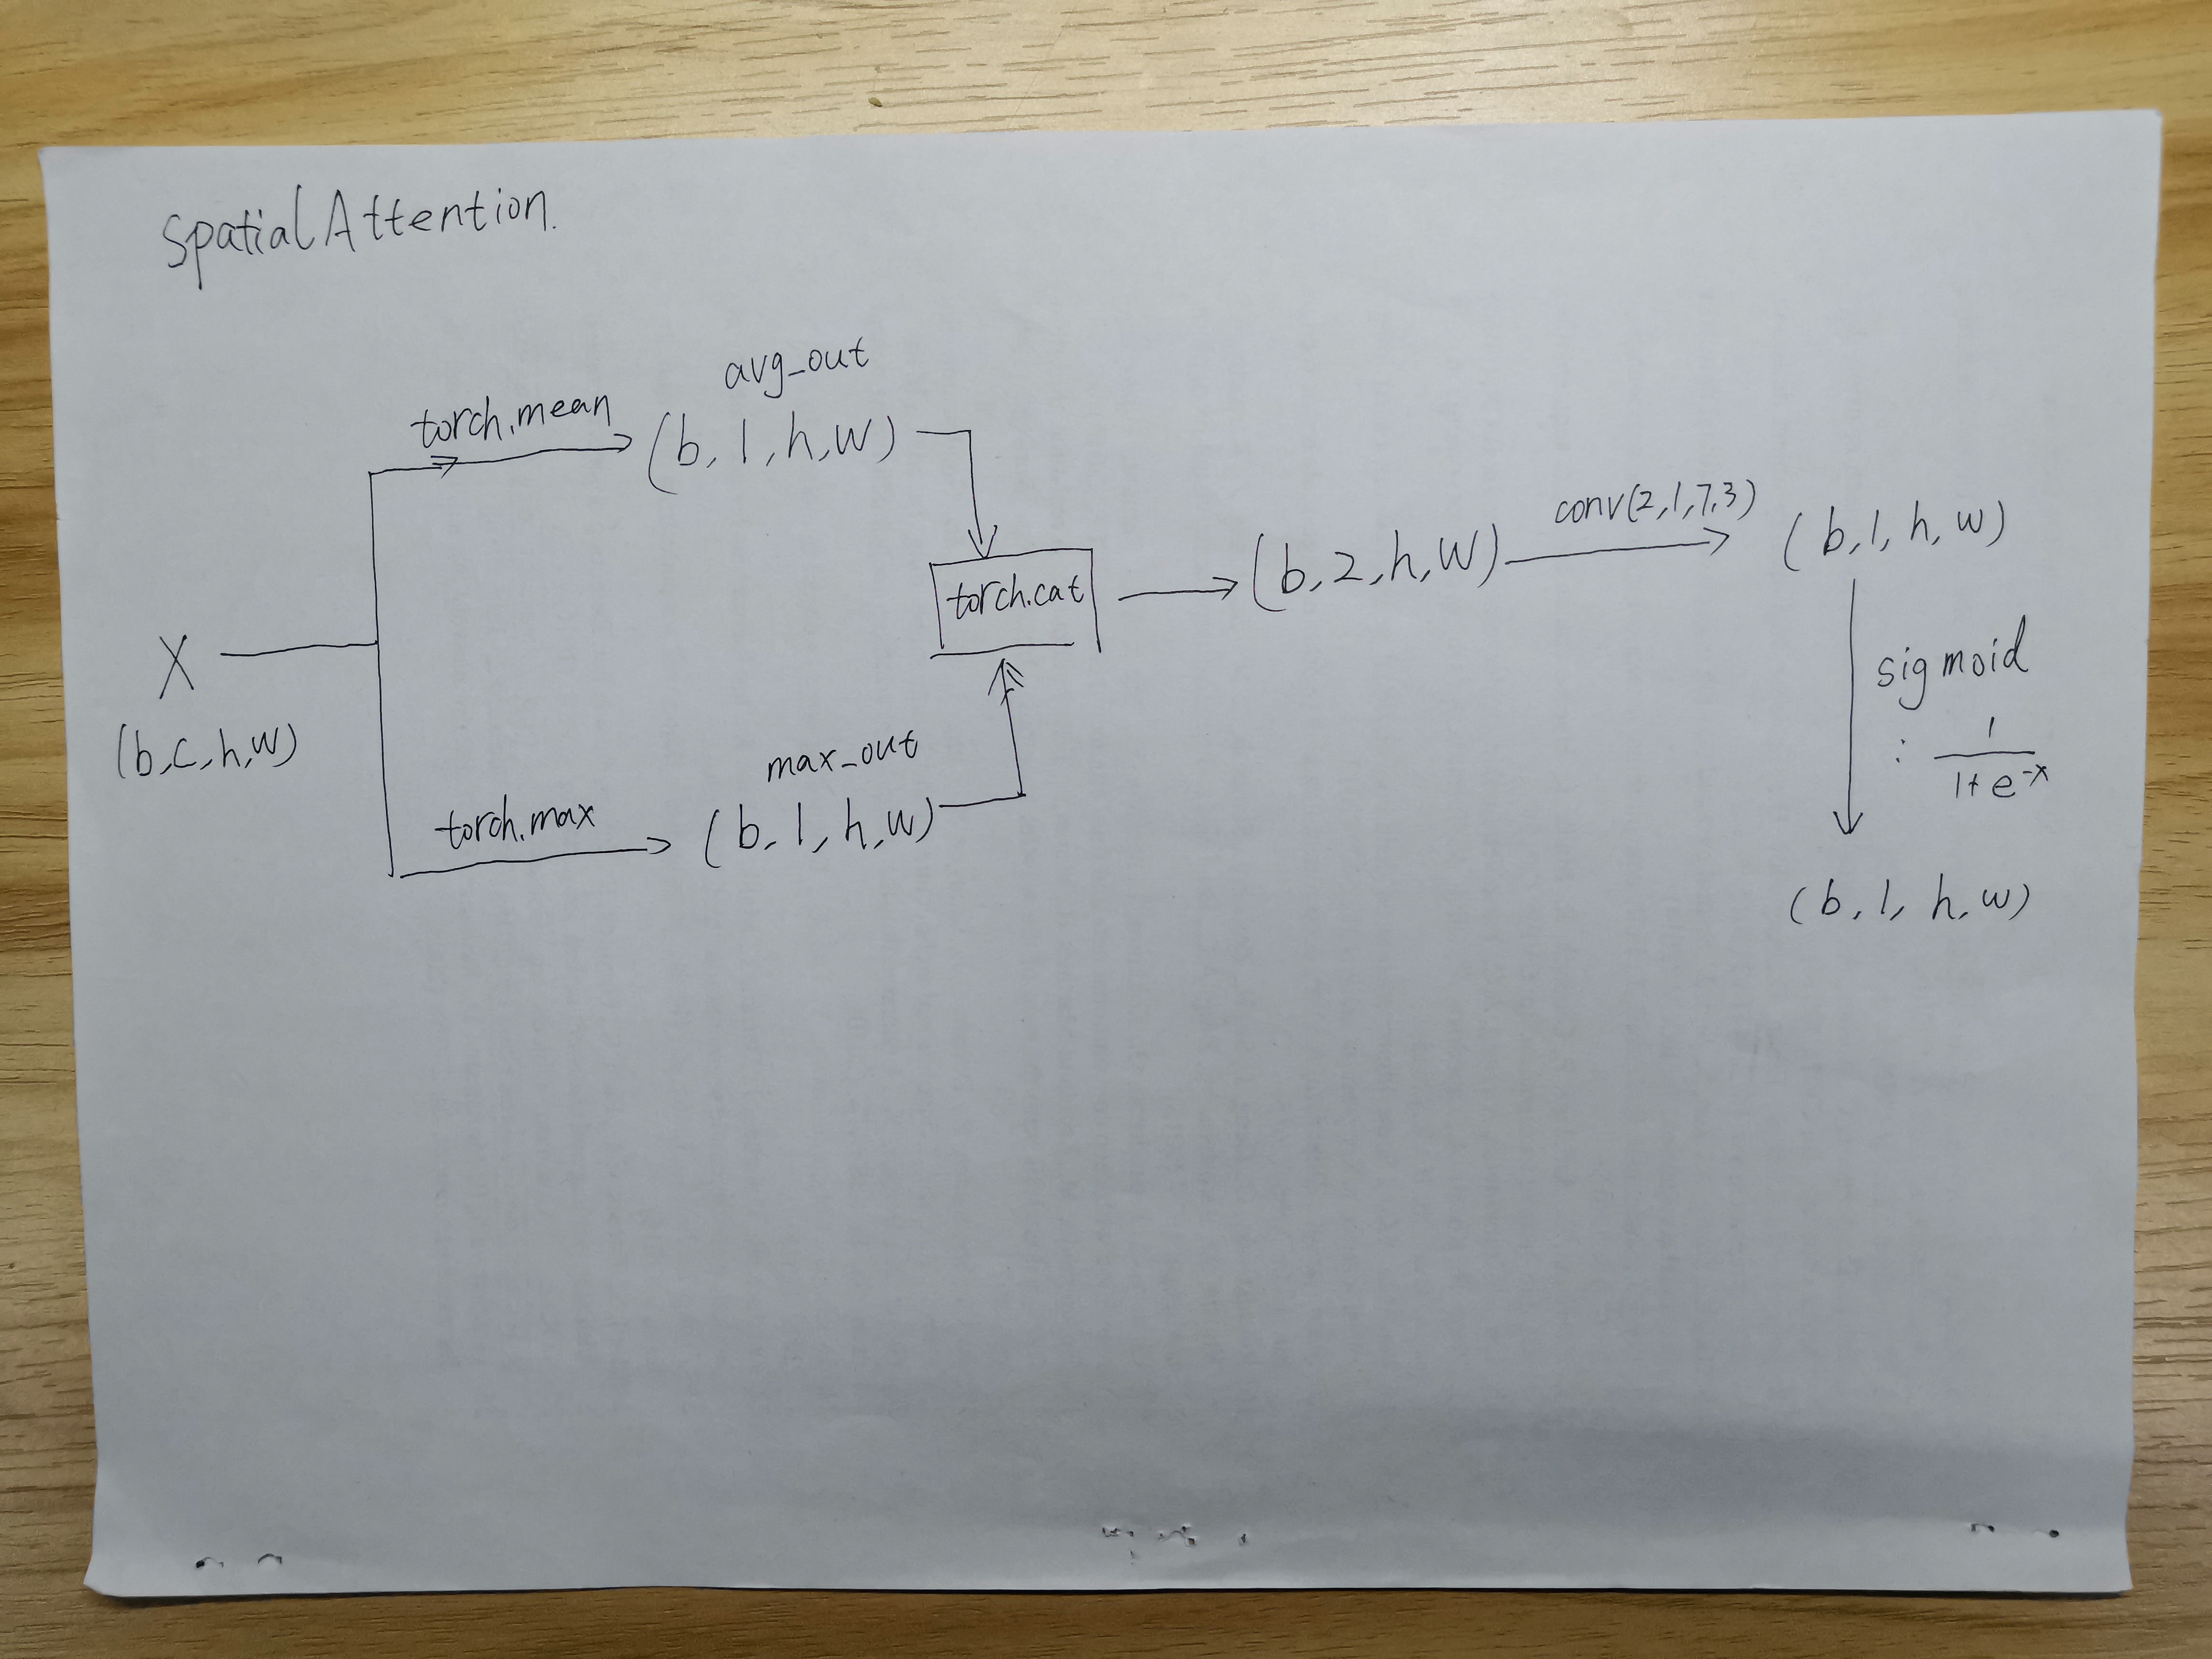 SpatialAttention.
avg_out
torch.mean
(b, 1, h, w)
conv(2,1,7,3)
(b, 1, h, w)
torch.cat
(b, 2, h, w)
X
(b, c, h, w)
sigmoid
: 1/(1+e^-x)
max_out
torch.max
(b, 1, h, w)
(b, 1, h, w)